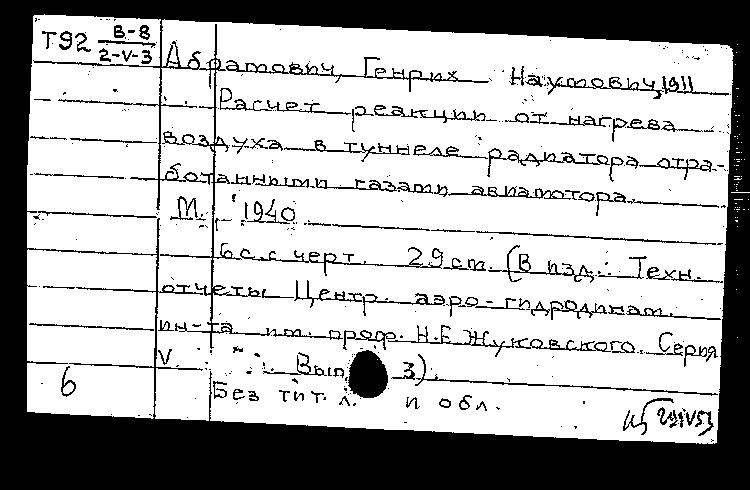 Т92 В-8
2-V-3
Абрамович, Генрих Наумович, 1911
Расчет реакции от нагрева
воздуха в туннеле радиатора отра-
ботанными газами авиамотора.
М., 1940
6 с. с черт. 29 cm. (В изд.: Техн.
отчеты Центр. аэро-гидродинам.
ин-та им. проф. Н.Е. Жуковского. Серия
V. Вып. 3).
Без тит. л. и обл.
6
29IV53